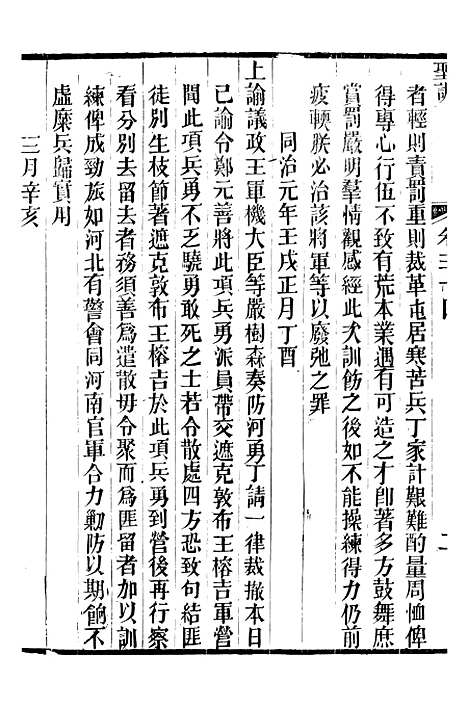 聖訓
卷三十四
二
者輕則責罰重則裁革屯居寒苦兵丁家計艱難酌量周恤俾
得專心行伍不致有荒本業遇有可造之才卽著多方鼓舞庶
賞罰嚴明羣情觀感經此次訓飭之後如不能操練得力仍前
疲輭朕必治該將軍等以廢弛之罪
同治元年壬戌正月丁酉
上諭議政王軍機大臣等嚴樹森奏防河勇丁請一律裁撤本日
已諭令鄭元善將此項兵勇派員帶交遮克敦布王榕吉軍營
因思此項兵勇不乏驍勇敢死之士若令散處四方恐致句結匪
徒別生枝節著遮克敦布王榕吉於此項兵勇到營後再行察
看分別去留去者務須善爲遣散毋令聚而爲匪留者加以訓
練俾成勁旅如河北有警會同河南官軍合力勦防以期餉不
虛糜兵歸實用
三月辛亥